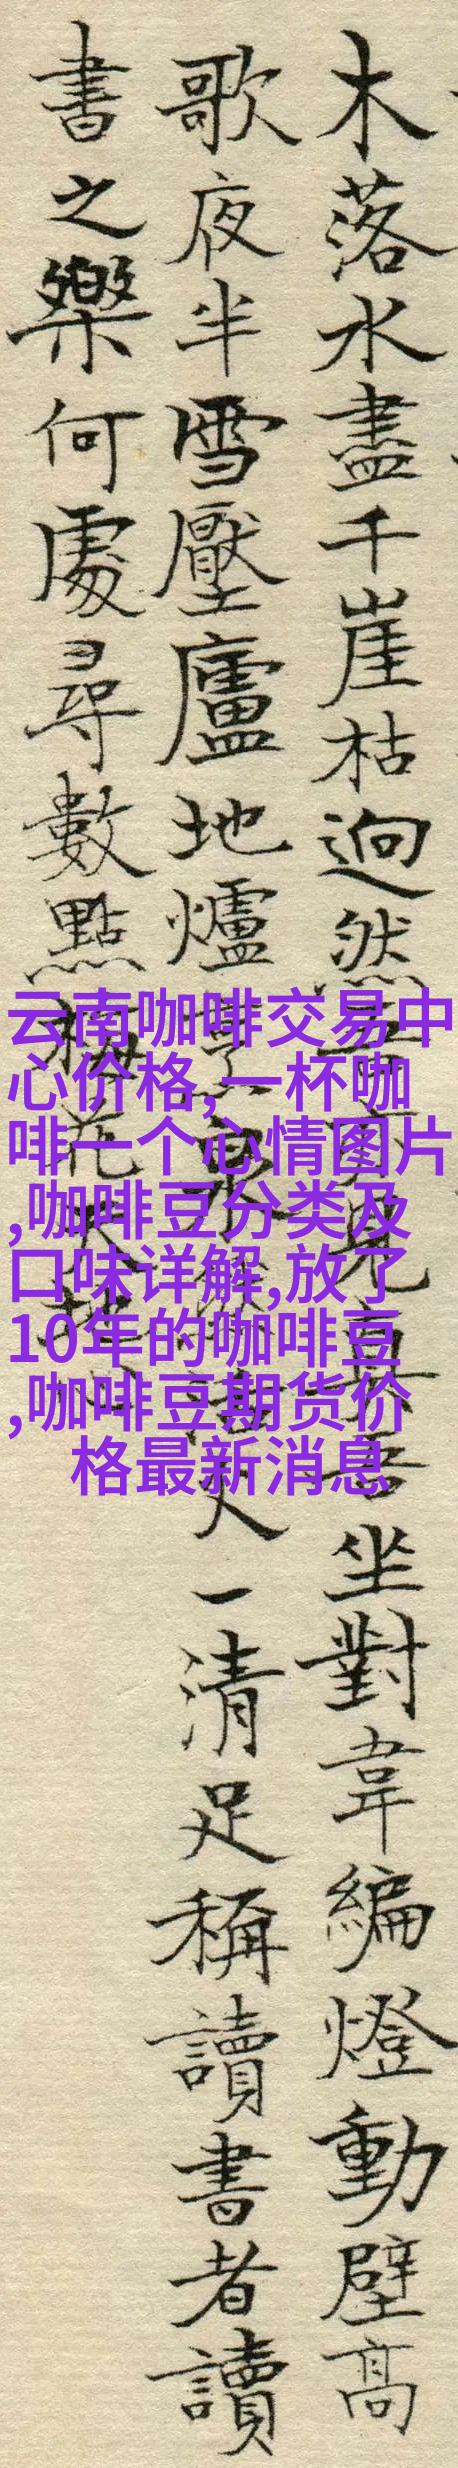 木落水盡千崖枯迥然吾亦見真吾坐對韋編燈動壁高
歌夜半雪壓廬地爐火一清足稱讀書者讀
書之樂何處尋數點梅花天地心
云南咖啡交易中
心价格,一杯咖
啡一个心情图片
,咖啡豆分类及
口味详解,放了
10年的咖啡豆
,咖啡豆期货价
格最新消息